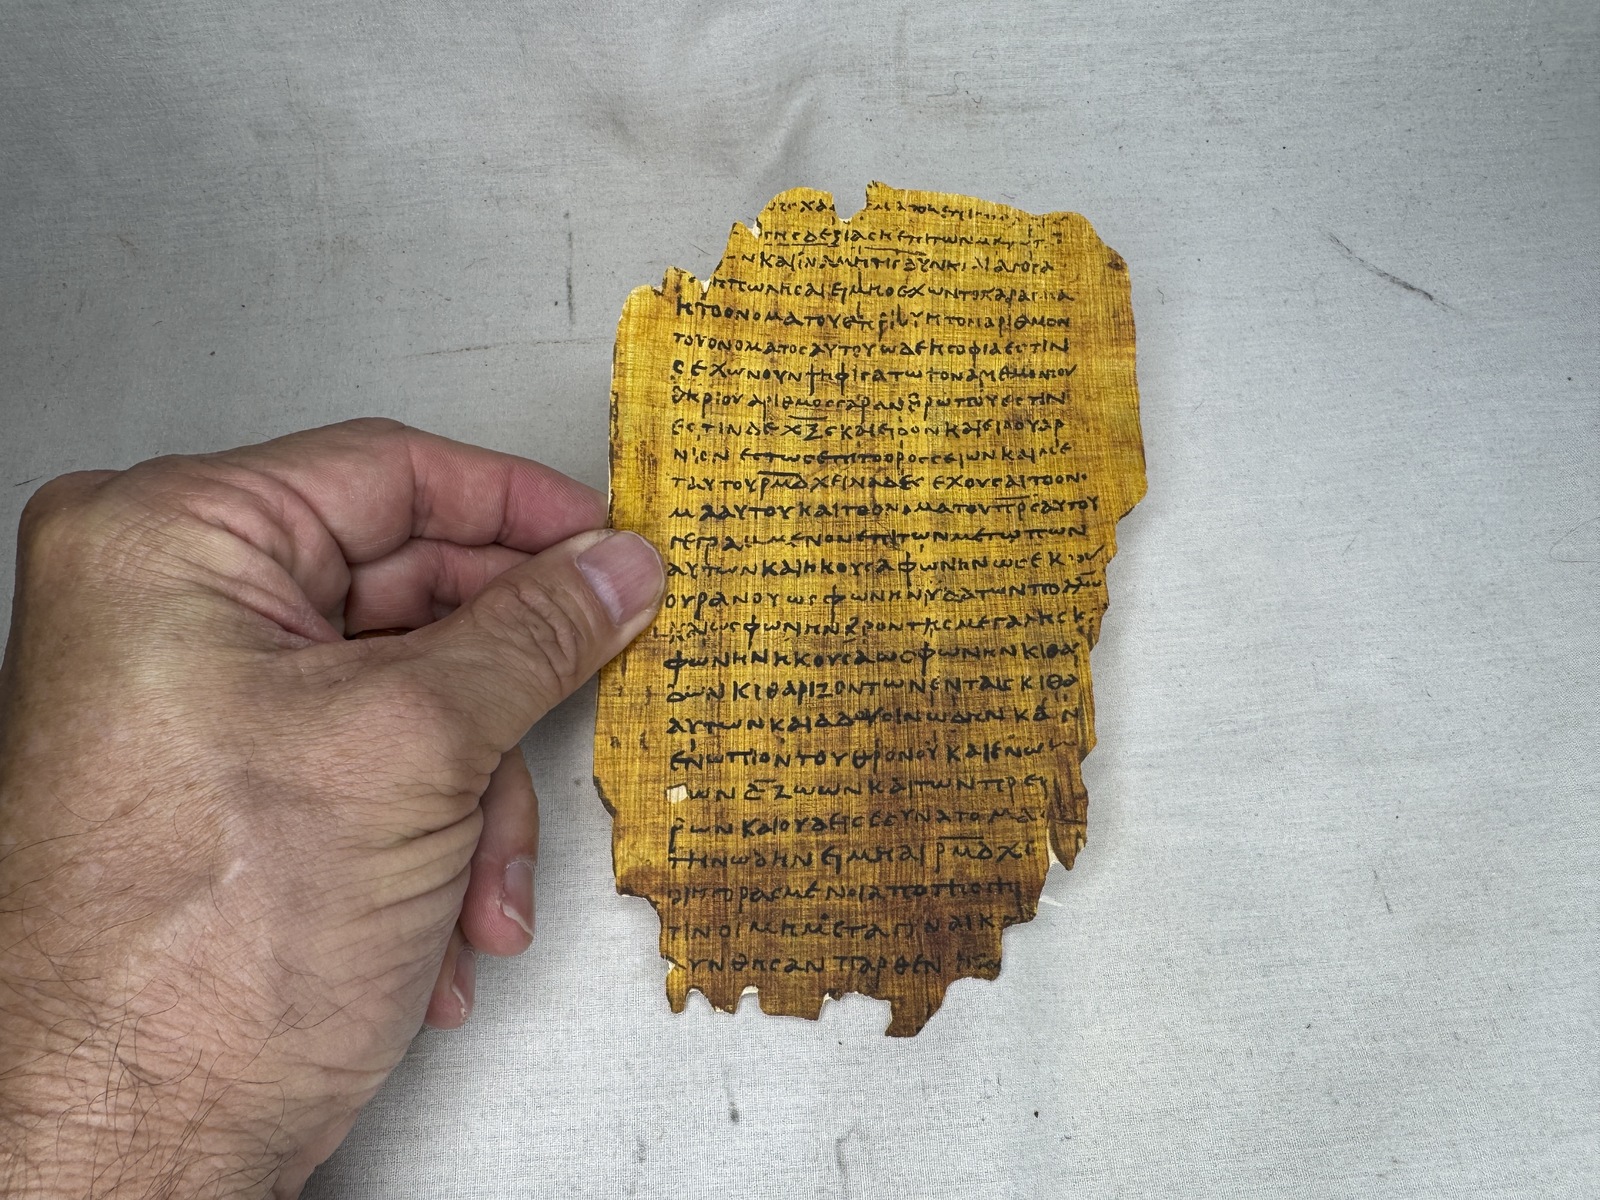 τηςδεξιαςηεπιτων
ηπωληςαιειμηοεχωντοχαραγμα
ητοονοματουθηριουητοναριθμον
τουονοματοςαυτουωδεηςοφιαεςτιν
εχωνουνψηφιςατωτοναριθμοντου
θηριουαριθμοςγαρανθρωπουεςτιν
εςτινδεχξςκαιειδονκαιειδουαρ
νιενεςτωςεπιτοοροςςειωνκαιμε
ταυτουρμδχειλιαδεςεχουςαιτοονο
μααυτουκαιτοονοματουπρςαυτου
γεγραμμενονεπιτωνμετωπων
αυτωνκαιηκουςαφωνηνωςεκτου
ουρανουωςφωνηνυδατωνπολλων
καιωςφωνηνβροντηςμεγαληςκ
φωνηνηκουςαωςφωνηνκιθαρ
δωνκιθαριζοντωνενταιςκιθα
αυτωνκαιαδουςινωδηνκαιν
ενωπιοντουθρονουκαιενω
ωνδζωωνκαιτωνπρες
ρωνκαιουδειςεδυνατομα
τηνωδηνειμηαιρμδχι
οιηγοραςμενοιαποτηςγης
τινοιμημεταγυναικ
λυνθηςανπαρθεν